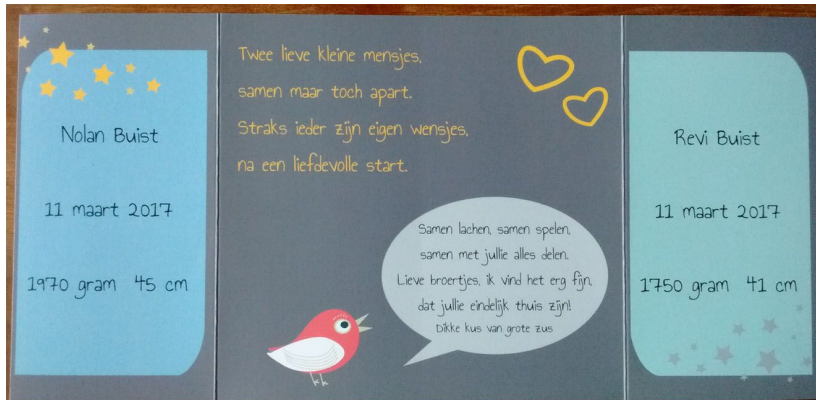 Nolan Buist
11 maart 2017
1970 gram 45 cm
Twee lieve kleine mensjes,
samen maar toch apart.
Straks ieder zijn eigen wensjes,
na een liefdevolle start.
Samen lachen, samen spelen,
samen met jullie alles delen.
Lieve broertjes, ik vind het erg fijn,
dat jullie eindelijk thuis zijn!
Dikke kus van grote zus
Revi Buist
11 maart 2017
1750 gram 41 cm